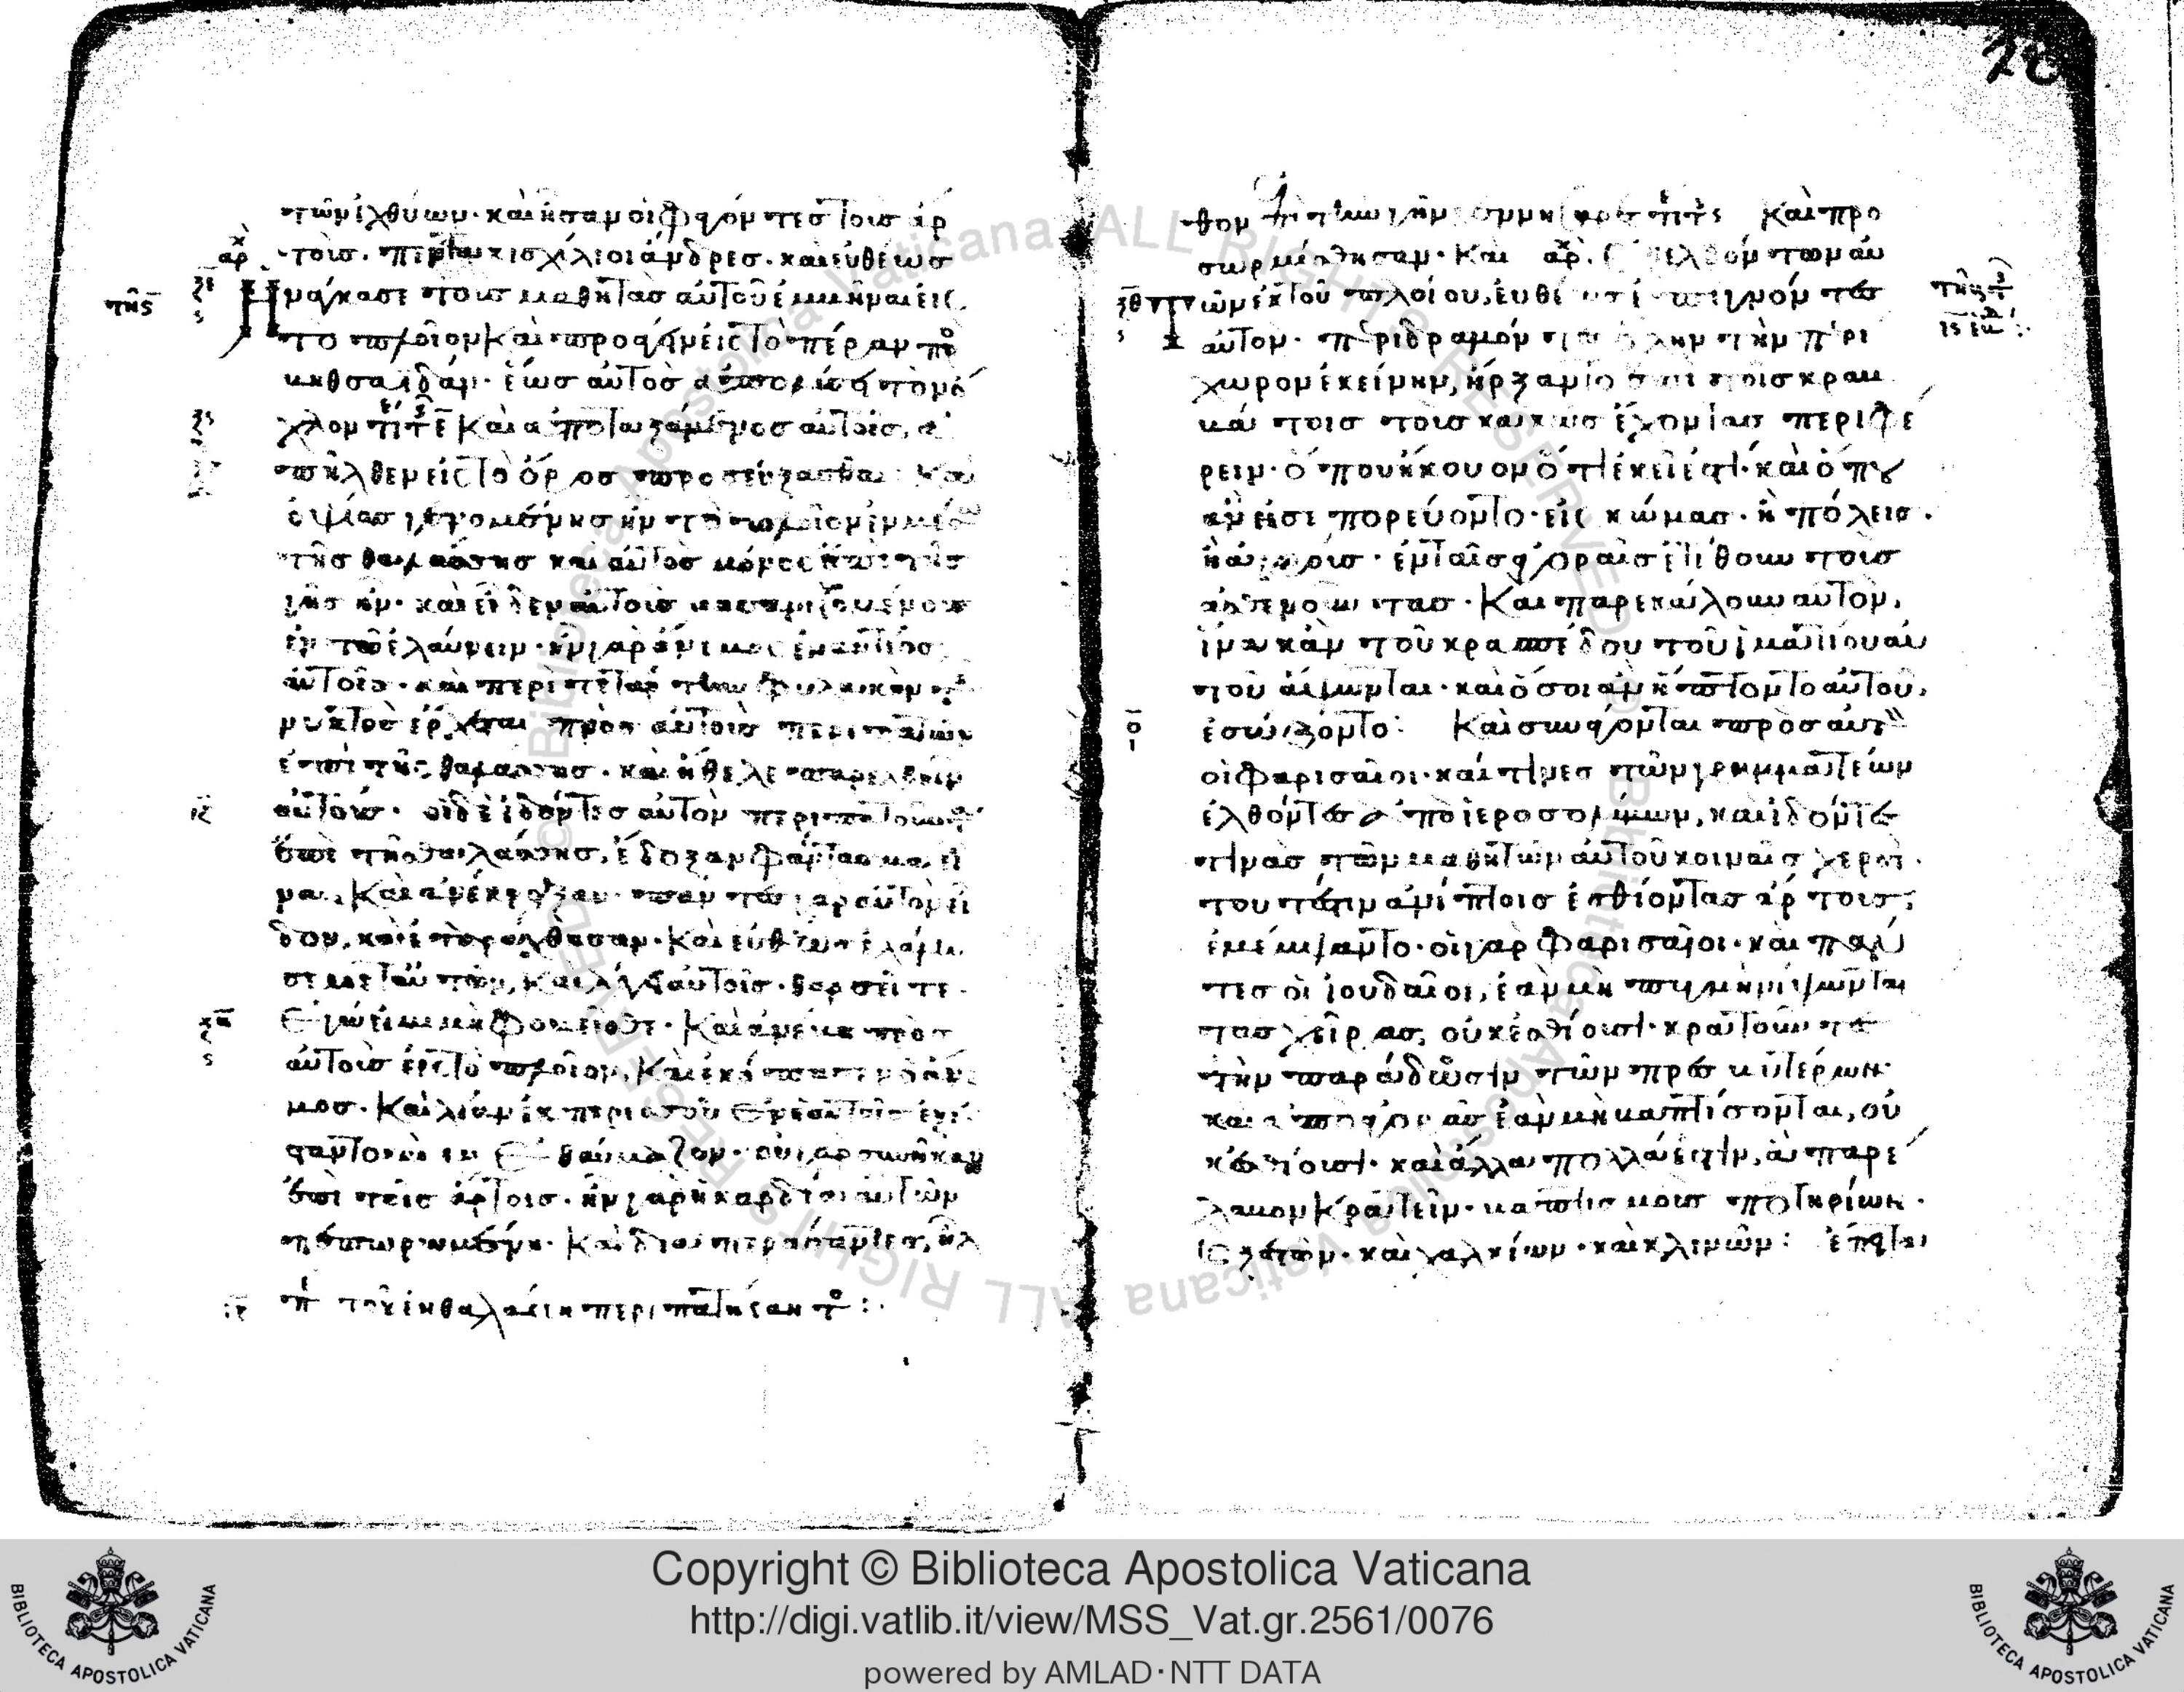 τῶν ἰχθύων· καὶ ἦσαν οἱ φαγόντες τοὺς ἄρ
τους· πεντακισχίλιοι ἄνδρες· καὶ εὐθέως
ἠνάγκασε τοὺς μαθητὰς αὐτοῦ ἐμβῆναι εἰς
τὸ πλοῖον καὶ προάγειν εἰς τὸ πέραν πρὸ
βηθσαϊδάν· ἕως αὐτὸς ἀπολύσῃ τὸν ὄ
χλον καὶ ἀποταξάμενος αὐτοῖς, ἀ
πῆλθεν εἰς τὸ ὄρος προσεύξασθαι· Καὶ
ὀψίας γενομένης ἦν τὸ πλοῖον ἐν μέσω
τῆς θαλάσσης καὶ αὐτὸς μόνος ἐπὶ τῆς
γῆς ἦν· καὶ εἶδεν αὐτοὺς βασανιζομένους
ἐν τῶ ἐλαύνειν· ἦν γὰρ ἄνεμος ἐναντίος
αὐτοῖς· καὶ περὶ τετάρτην φυλακὴν τῆς
νυκτὸς ἔρχεται πρὸς αὐτοὺς περιπατῶν
ἐπὶ τῆς θαλάσσης· καὶ ἤθελε παρελθεῖν
αὐτούς· οἱ δὲ ἰδόντες αὐτὸν περιπατοῦντα
ἐπὶ τῆς θαλάσσης, ἔδοξαν φάντασμα εἶ
ναι, Καὶ ἀνέκραξαν· πάντες γὰρ αὐτὸν εἶ
δον, καὶ ἐταράχθησαν· Καὶ εὐθέως ἐλάλη
σε μετ αὐτῶν, Καὶ λέγει αὐτοῖς· θαρσεῖτε·
ἐγώ εἰμι μὴ φοβεῖσθε· Καὶ ἀνέβη πρὸς
αὐτοὺς εἰς τὸ πλοῖον, Καὶ ἐκόπασεν ὁ ἄνε
μος· Καὶ λίαν ἐκ περισσοῦ ἐν ἑαυτοῖς ἐξί
σταντο καὶ ἐθαύμαζον· οὐ γὰρ συνῆκαν
ἐπὶ τοῖς ἄρτοις· ἦν γὰρ ἡ καρδία αὐτῶν
πεπωρωμένη· Καὶ διαπεράσαντες, ἦλ
ιζ π τοῦ ἐν θαλάσση περιπάτησαν τ :·
θον Καὶ προ
σωρμίσθησαν· Καὶ ἐξελθόντων αὐ
τῶν ἐκ τοῦ πλοίου, εὐθέως ἐπιγνόντες
αὐτὸν· περιδραμόντες ὅλην τὴν περί
χωρον ἐκείνην, ἤρξαντο ἐπὶ τοῖς κραβ
βά τοις τοὺς κακῶς ἔχοντας περιφέ
ρειν· ὅπου ἤκουον ὅτι ἐκεῖ ἐστί· καὶ ὅπου
ἂν εἰσεπορεύοντο· εἰς κώμας· ἢ πόλεις·
ἢ ἀγρούς· ἐν ταῖς ἀγοραῖς ἐτίθουν τοὺς
ἀσθενοῦντας· Καὶ παρεκάλουν αὐτὸν,
ἵνα κἂν τοῦ κρασπέδου τοῦ ἱματίου αὐ
τοῦ ἅψωνται· καὶ ὅσοι ἂν ἥπτοντο αὐτοῦ,
ἐσώζοντο: Καὶ συνάγονται πρὸς αὐτὸν
οἱ φαρισαῖοι· καί τινες τῶν γραμματέων
ἐλθόντες ἀπὸ ἱεροσολύμων, καὶ ἰδόντες
τινὰς τῶν μαθητῶν αὐτοῦ κοιναῖς χερσὶ·
τουτέστιν ἀνίπτοις ἐσθίοντας ἄρτους,
ἐμέμψαντο· οἱ γὰρ φαρισαῖοι· καὶ πάν
τες οἱ ἰουδαῖοι, ἐὰν μὴ πυγμῆ νίψωνται
τας χεῖρας, οὐκ ἐσθίουσι· κρατοῦντες
τὴν παράδωσιν τῶν πρεσβυτέρων·
και ἀπὸ ἀγορᾶς ἐὰν μὴ βαπτίσονται, οὐ
κ ἐσθίουσι· καὶ ἄλλα πολλά ἐστιν, ἃ παρέ
λαβον κρατεῖν· βαπτισμοὺς ποτηρίων·
ξεστῶν· καὶ χαλκίων· καὶ κλινῶν: ἔπειτα
Copyright © Biblioteca Apostolica Vaticana
http://digi.vatlib.it/view/MSS_Vat.gr.2561/0076
powered by AMLAD·NTT DATA
BIBLIOTECA APOSTOLICA VATICANA
BIBLIOTECA APOSTOLICA VATICANA